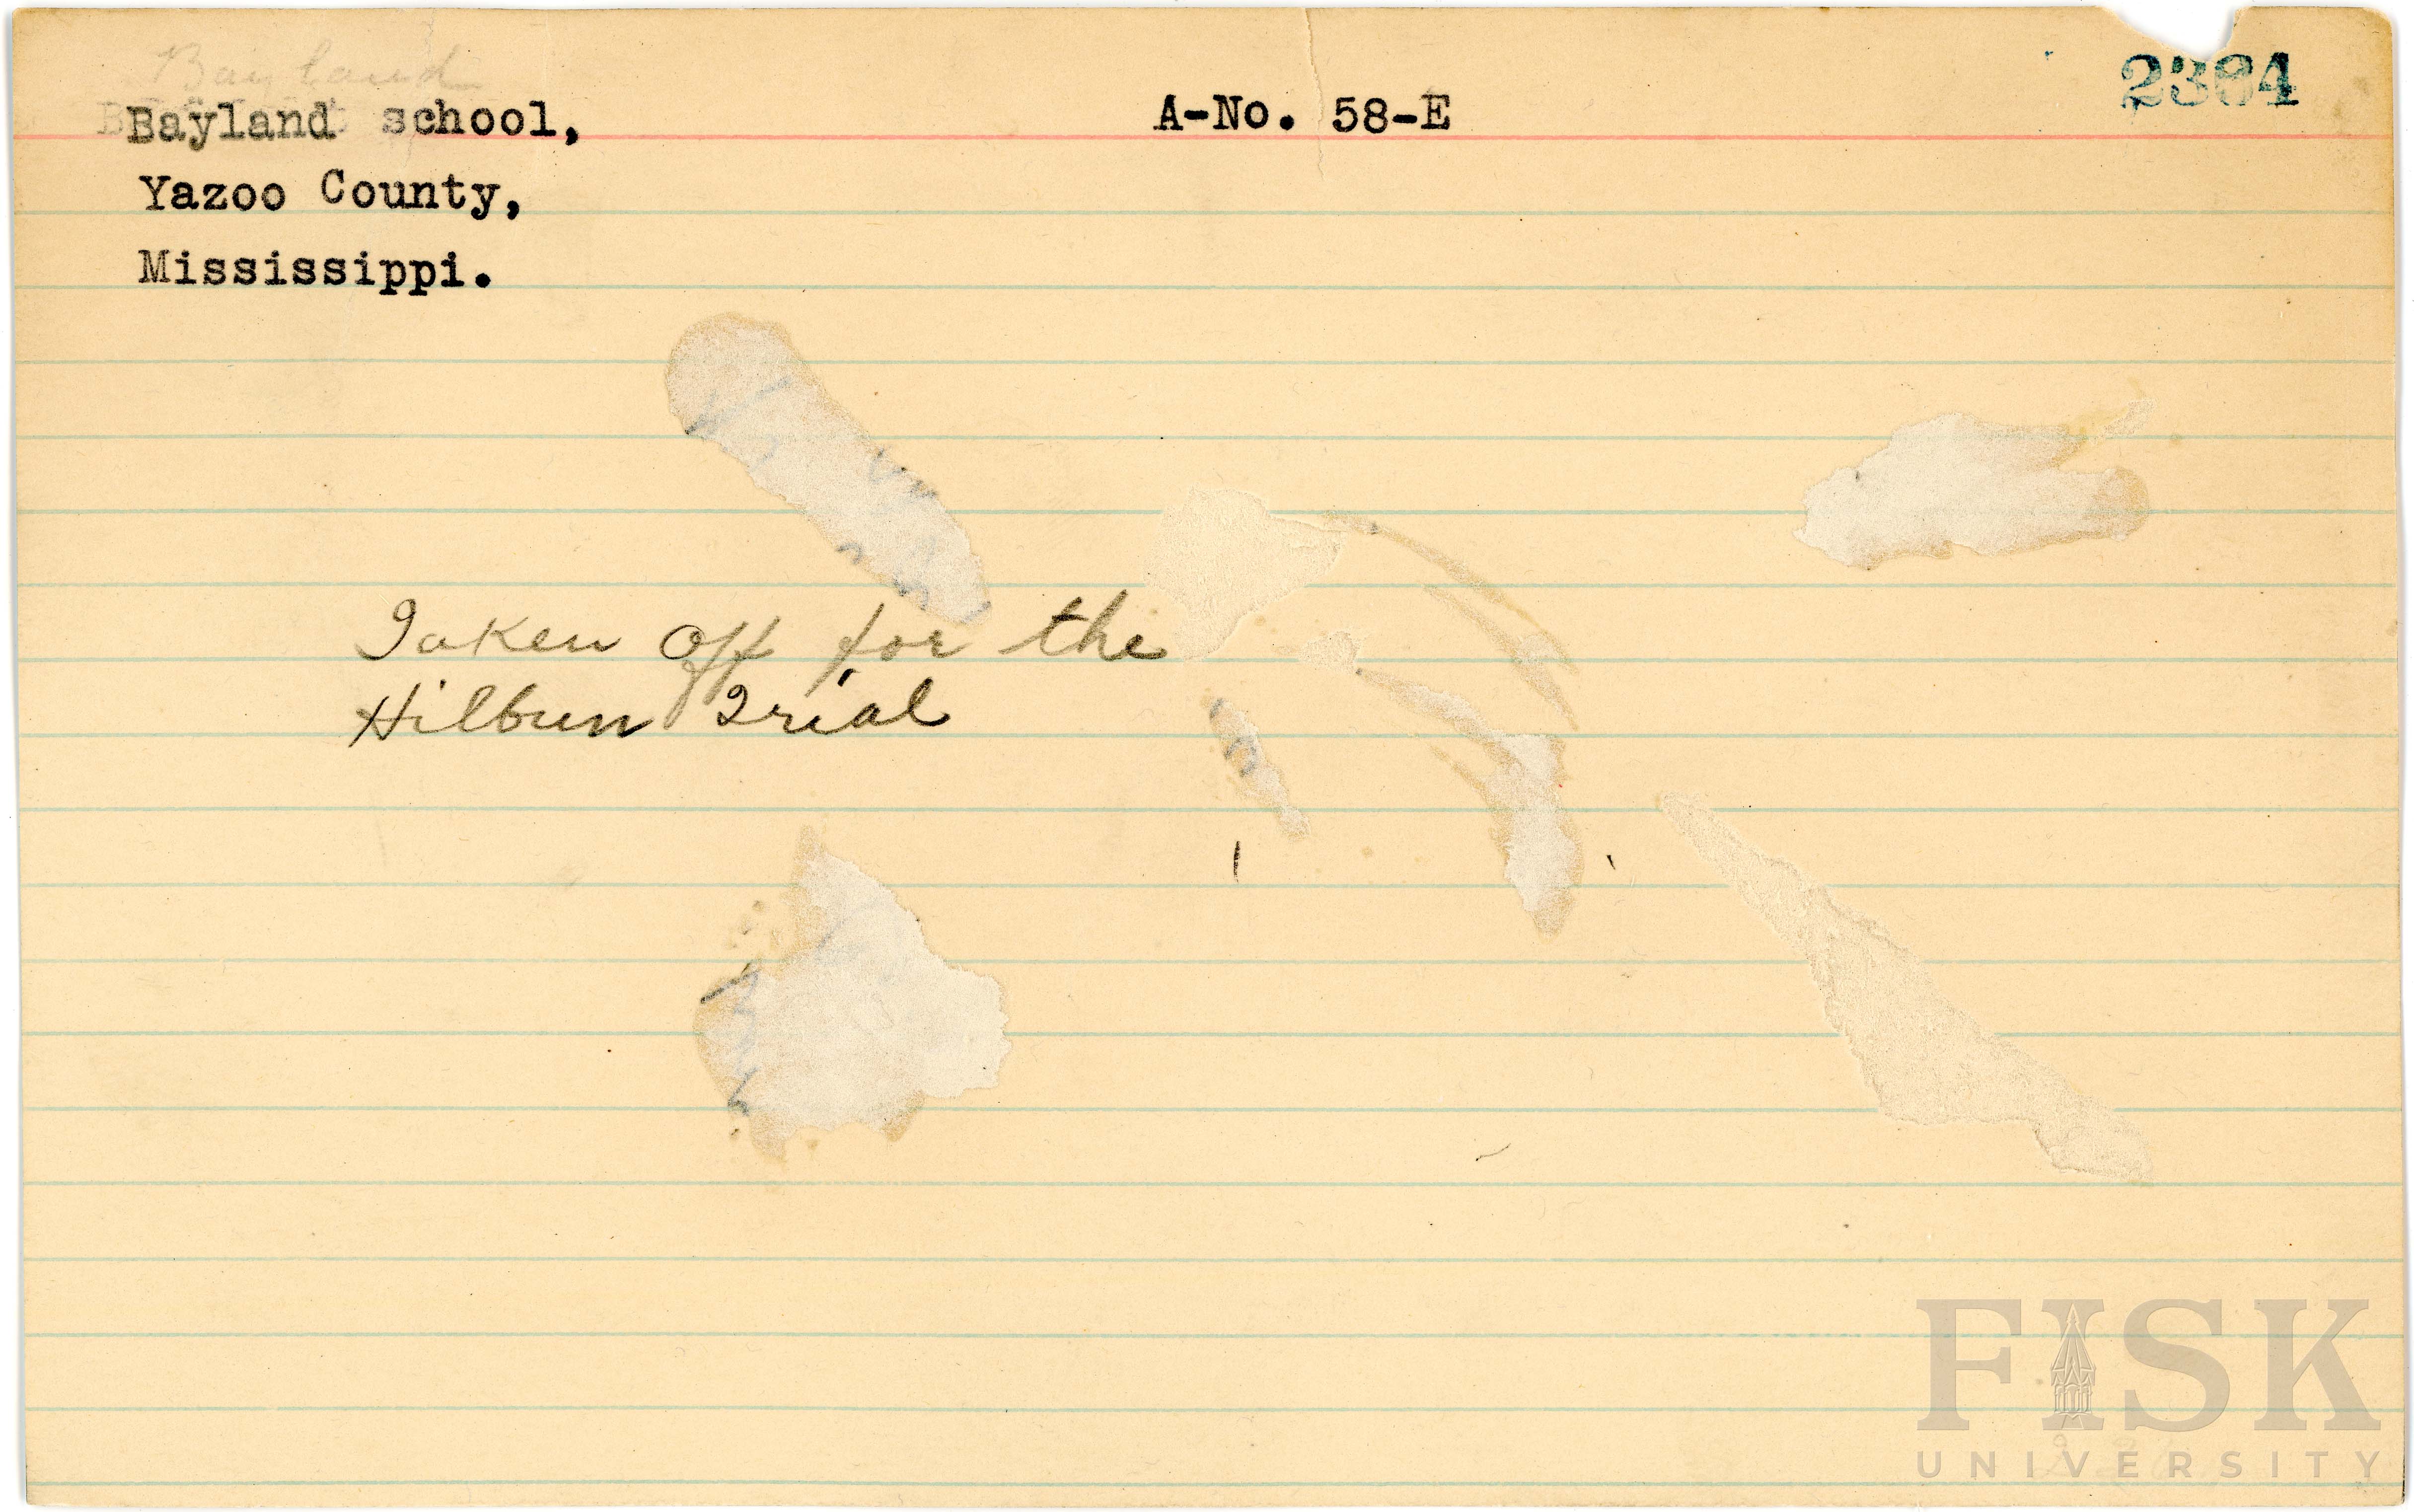 Bayland
2384
Bayland school,
A-No. 58-E
Yazoo County,
Mississippi.
Taken off for the
Hilbun Trial
FISK
UNIVERSITY